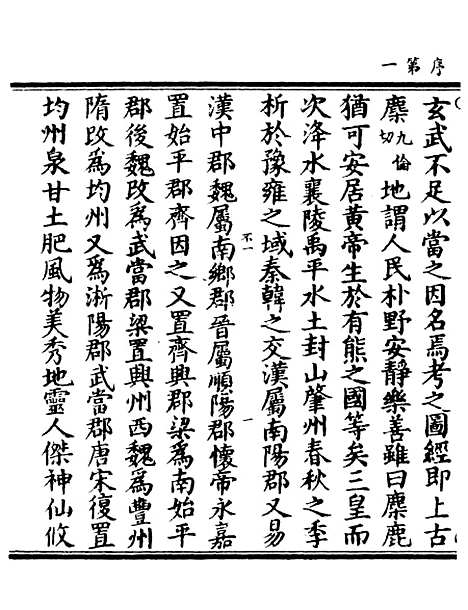 序第一
玄武不足以當之因名焉考之圖經即上古
麇九倫切地謂人民朴野安靜樂善雖曰麇鹿
猶可安居黃帝生於有熊之國等矣三皇而
次洚水襄陵禹平水土封山肇州春秋之季
析於豫雍之域秦韓之交漢屬南陽郡又易
不一
漢中郡魏屬南鄉郡晉屬順陽郡懷帝永嘉
一
置始平郡齊因之又置齊興郡梁為南始平
郡後魏改為武當郡梁置興州西魏為豐州
隋改為均州又為淅陽郡武當郡唐宋復置
均州泉甘土肥風物美秀地靈人傑神仙攸